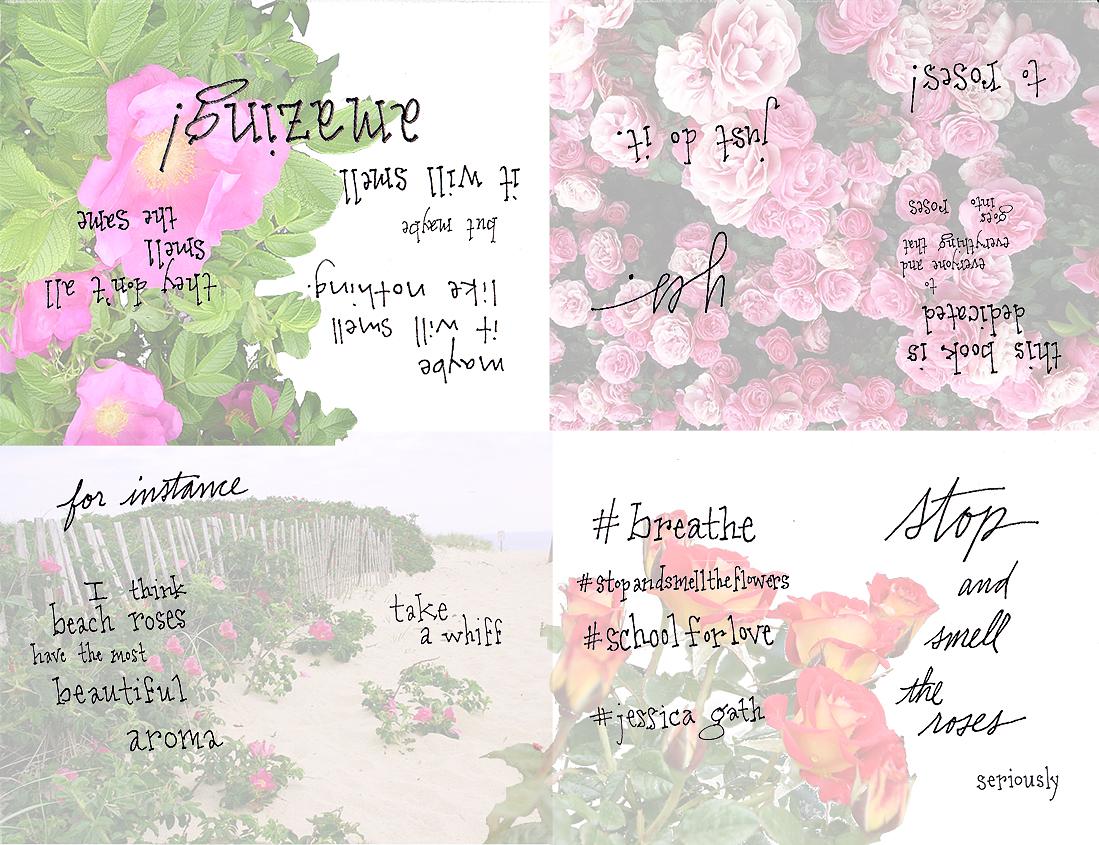 stop
and
smell
the
roses
seriously
this book is
dedicated
to
everyone and
everything that
goes
into
roses
to roses!
yes.
just do it.
maybe
it will smell
like nothing.
but maybe
it will smell
amazing!
they don't all
smell
the same
for instance
I think
beach roses
have the most
beautiful
aroma
take
a whiff
# breathe
#stopandsmelltheflowers
#school for love
#jessica gath